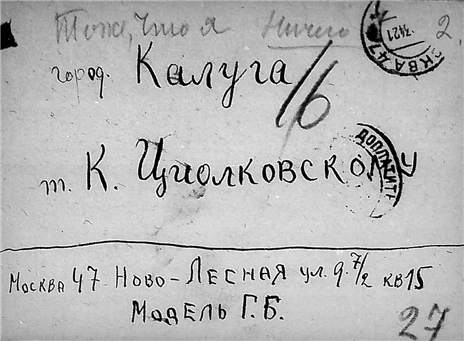 Тоже, что я Ничего 2.
город. Калуга
16
т. К. Циолковскому
ДОПЛАТИТЬ
МОСКВА 47 НОВО-ЛЕСНАЯ ул. д. 7/2 кв 15
МОДЕЛЬ Г.Б.
27